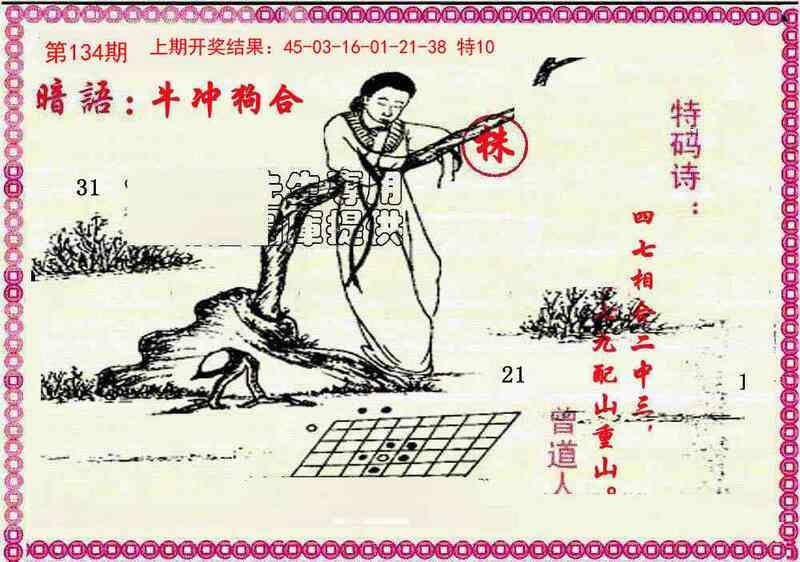 第134期
上期开奖结果：45-03-16-01-21-38 特10
暗語：牛冲狗合
株
特码诗：
31
提供
四七相合二中三，
九配山重山。
21
1
曾道人